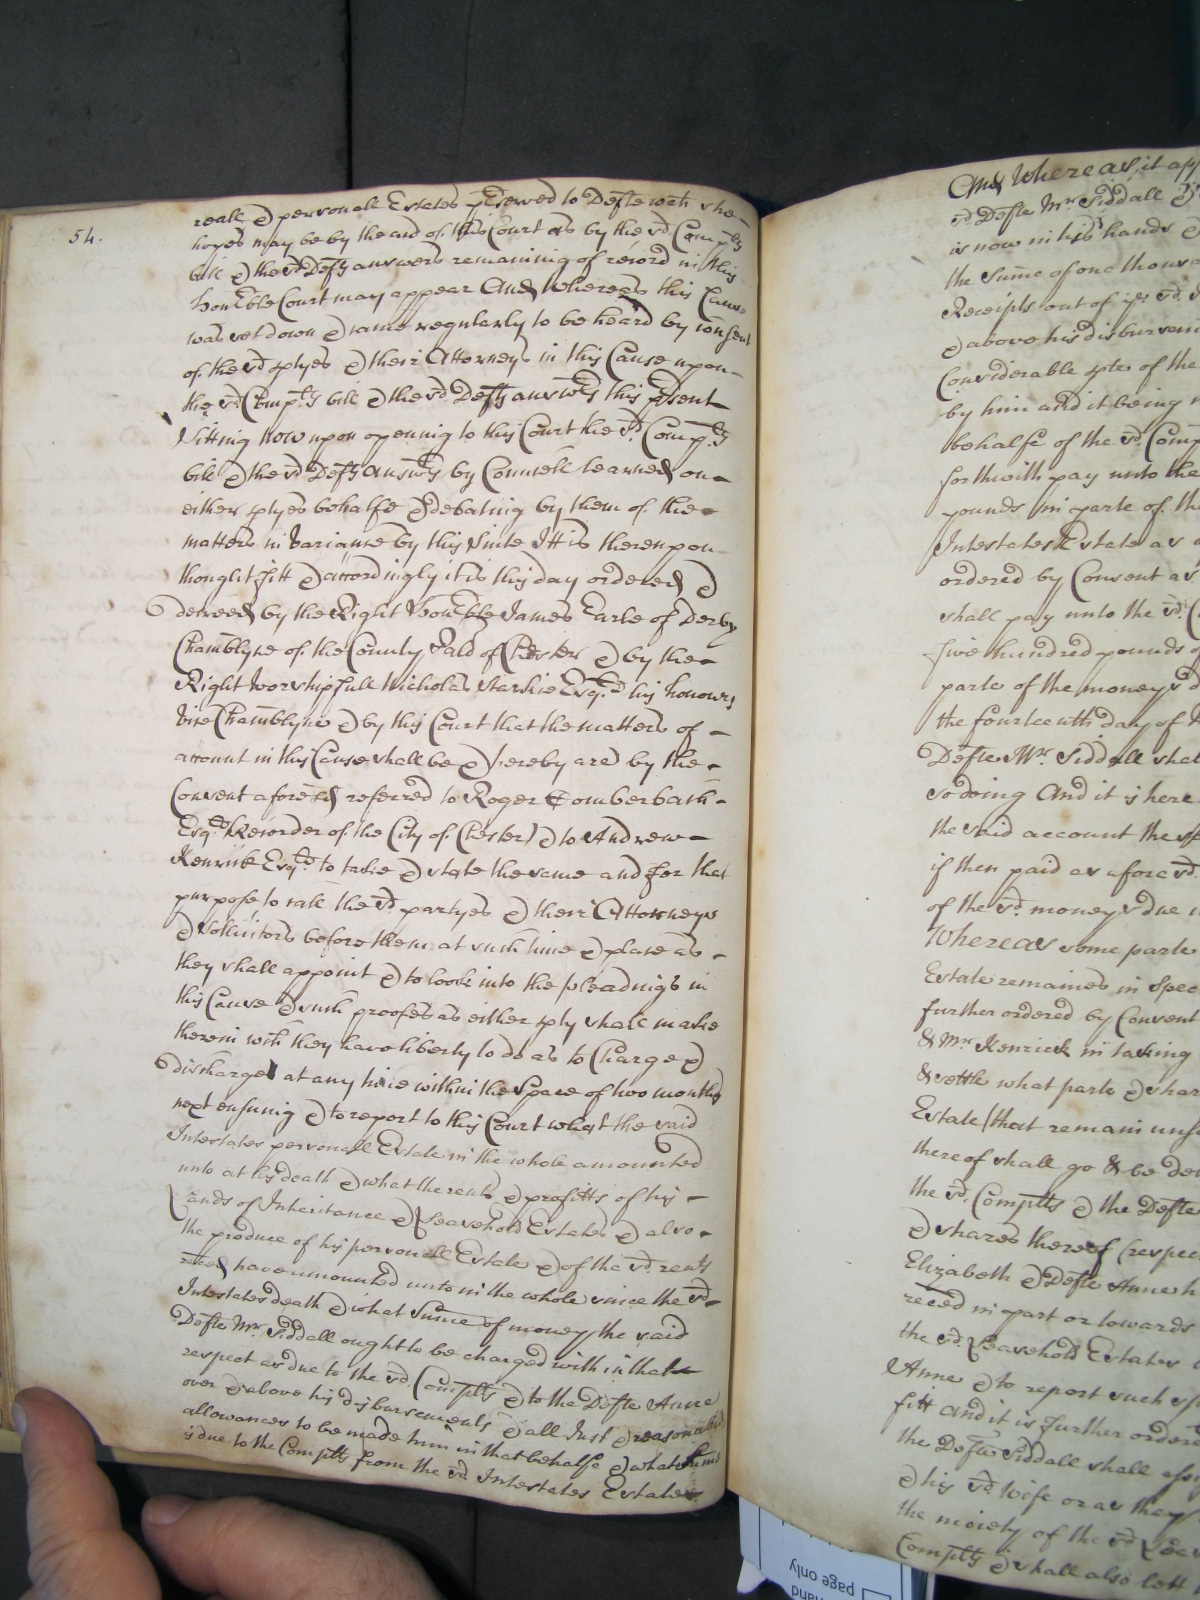 54.
reall & personall Estates pserved to Defte wch she
hopes may be by the and of this Court as by the sd. Complts
bill & the sd Defts answers remaining of record in this
honble Court may appear And Whereas this Cause
was set down & came regularly to be heard by consent
of the sd ptyes & their Attorneys in this Cause upon
the sd. Complts bill & the sd. Defts answrs this psent
Sitting Now upon opening to this Court the sd. Complts
bill & the sd Defts answrs by Councell learned on
either ptyes behalfe & debating by them of the
matters in variance by this Suite It is thereupon
thought fitt & accordingly it is this day ordered &
decreed by the Right Honble James Earle of Derby
Chamblyne of the County Pald of Chester & by the
Right worshipfull Nicholas Starkie Esqr his honours
vice Chamblyne & by this Court that the matters of
account in this Cause shall be & hereby are by the
Consent aforesd referred to Roger Comberbach
Esqr (Recorder of the City of Chester) & to Andrew
Kenrick Esqr to take & state the same and for that
purpose to call the sd. partyes & their Attorneys
& Sollicitors before them at such time & place as
they shall appoint & to look into the pleadings in
this Cause & such proofes as either pty shall make
therein wch they have liberty to do as to Charge &
discharge at any time within the Space of two months
next ensuing & to report to this Court what the said
Intestates personall Estate in the whole amounted
unto at his death & what the rents & profitts of his
Lands of Inheritance & Leasehold Estates & also
the produce of his personall Estate & of the sd. rents
have amounted unto in the whole since the sd
Intestates death & what Sume of money the said
Defte Mr. Siddall ought to be charged with in that
respect as due to the sd. Complts & to the Defte Anne
over & above his disbursements & all Just & reasonable
allowances to be made him in that behalfe & what Sume
is due to the Complts from the sd Intestates Estate
And Whereas it app
sd Defte Mr Siddall
is now in his hands &
the sume of one thousa
Receipts out of ye sd.
& above his disbursem
Considerable pte of the
by him and it being
behalfe of the sd. Comp
forthwith pay unto the
pounds in parte of th
Intestates Estate as
ordered by Consent as
shall pay unto the sd.
five hundred pounds o
parte of the money sd
the fourteenth day of
Defte Mr. Siddall shal
so doing And it is here
the said account the
if then paid as afore sd.
of the sd. money due
Whereas some parte
Estate remaines in spec
further ordered by Consent
& Mr Kenrick in taking
& settle what parte & shar
Estate (that remain
thereof shall go & be
the sd. Complts & the Defte
& shares thereof (respec
Elizabeth & Defte Anne h
reced in part or towards
the sd. Leasehold Estates
Anne & to report such
fitt And it is further ordere
the Defte Siddall shall
& his sd. wife or as they
the moiety of the sd Leas
Complts & shall also lett